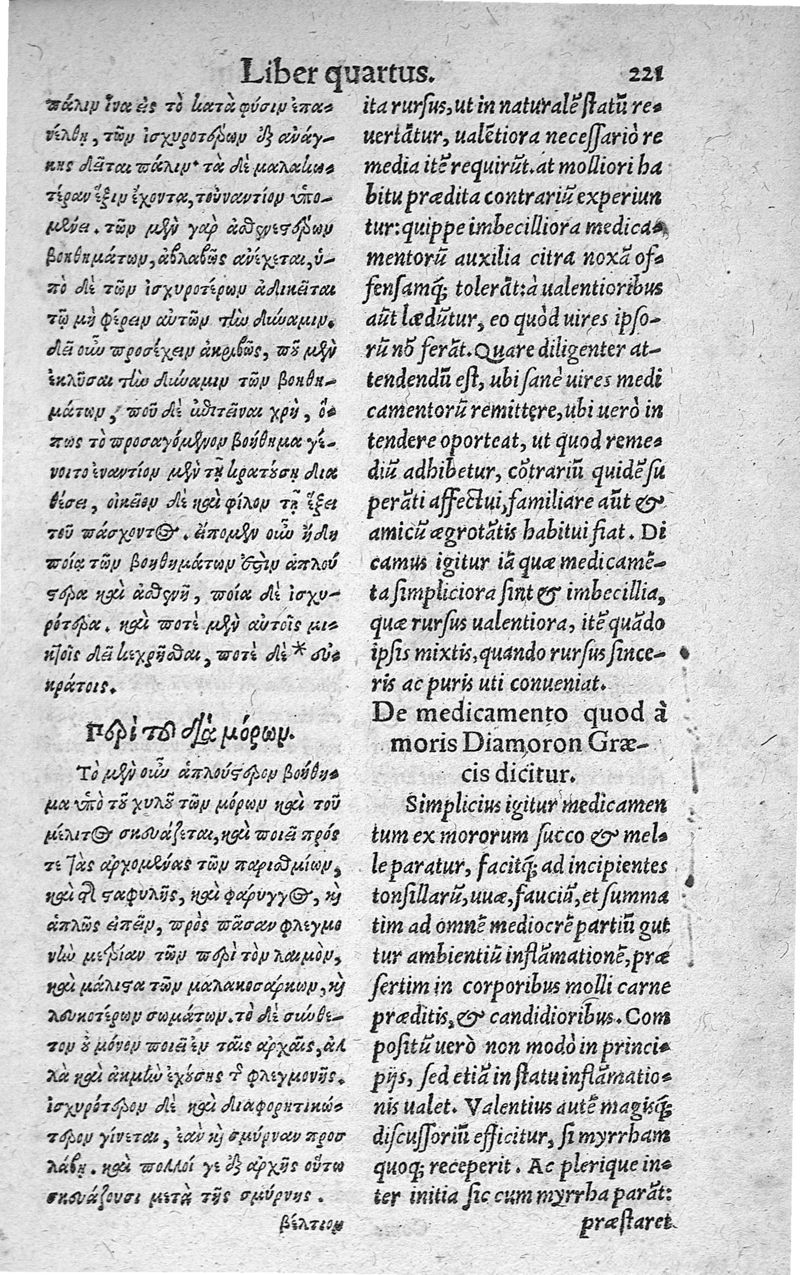 Liber quartus. 221
πάλιν ἵνα εἰς τὸ κατὰ φύσιν ἐπα-
νέλθῃ, τῶν ἰσχυροτέρων ἐξ ἀνάγ-
κης δεῖται πάλιν· τὰ δὲ μαλακω-
τέραν ἕξιν ἔχοντα, τοὐναντίον ὑπο-
μένει. τῶν μὲν γὰρ ἀσθενεστέρων
βοηθημάτων, ἀβλαβῶς ἀνέχεται, ὑ-
πὸ δὲ τῶν ἰσχυροτέρων ἀδικεῖται
τῷ μὴ φέρειν αὐτῶν τὴν δύναμιν.
δεῖ οὖν προσέχειν ἀκριβῶς, ποῦ μὲν
ἐκλῦσαι τὴν δύναμιν τῶν βοηθη-
μάτων, ποῦ δὲ ἐπιτεῖναι χρὴ, ὅ-
πως τὸ προσαγόμενον βοήθημα γέ-
νοιτο ἐναντίον μὲν τῇ κρατούσῃ δια
θέσει, οἰκεῖον δὲ καὶ φίλον τῇ ἕξει
τοῦ πάσχοντος. εἴπομεν οὖν ἤδη
ποῖα τῶν βοηθημάτων ἐστὶν ἁπλού
στερα καὶ ἀσθενῆ, ποῖα δὲ ἰσχυ-
ρότερα. καὶ ποτὲ μὲν αὐτοῖς μι-
κτοῖς δεῖ κεχρῆσθαι, ποτὲ δὲ * εὐ
κράτοις.
Περὶ τοῦ διὰ μόρων.
Τὸ μὲν οὖν ἁπλούστερον βοήθη-
μα ὑπὸ τοῦ χυλοῦ τῶν μόρων καὶ τοῦ
μέλιτος σκευάζεται, καὶ ποιεῖ πρός
τε τὰς ἀρχομένας τῶν παρισθμίων,
καὶ τῆς σταφυλῆς, καὶ φάρυγγος, καὶ
ἁπλῶς εἰπεῖν, πρὸς πᾶσαν φλεγμο
νὴν μετρίαν τῶν περὶ τὸν λαιμὸν,
καὶ μάλιστα τῶν μαλακοσάρκων, καὶ
λευκοτέρων σωμάτων. τὸ δὲ σύνθε-
τον οὐ μόνον ποιεῖ ἐν ταῖς ἀρχαῖς, ἀλ
λὰ καὶ ἀκμὴν ἐχούσης τῆς φλεγμονῆς.
ἰσχυρότερον δὲ καὶ διαφορητικώ-
τερον γίνεται, ἐὰν καὶ σμύρναν προσ
λάβῃ. καὶ πολλοί γε ἐξ ἀρχῆς οὕτω
σκευάζουσι μετὰ τῆς σμύρνης.
βέλτιον
ita rursus, ut in naturalē statū re-
uertātur, ualētiora necessariò re
media itē requirūt. át molliori ha
bitu prædita contrariū experiun
tur: quippe imbecilliora medica-
mentorū auxilia citra noxā of-
fensamq; tolerāt: à ualentioribus
aūt lædūtur, eo quòd uires ipso-
rū nō ferāt. Quare diligenter at-
tendendū est, ubi sanè uires medi
camentorū remittere, ubi uerò in
tendere oporteat, ut quod reme-
diū adhibetur, cōtrariū quidē su
perāti affectui, familiare aūt &
amicū ægrotātis habitui fiat. Di
camus igitur iā quæ medicamē-
ta simpliciora sint & imbecillia,
quæ rursus ualentiora, itē quādo
ipsis mixtis, quando rursus since-
ris ac puris uti conueniat.
De medicamento quod à
moris Diamoron Græ-
cis dicitur.
Simplicius igitur medicamen
tum ex mororum succo & mel-
le paratur, facitq; ad incipientes
tonsillarū, uuæ, fauciū, et summa
tim ad omnē mediocrē partiū gut
tur ambientiū inflāmationē, præ
sertim in corporibus molli carne
præditis, & candidioribus. Com
positū uerò non modò in princi-
pijs, sed etiā in statu inflāmatio-
nis ualet. Valentius autē magisq;
discussoriū efficitur, si myrrham
quoq; receperit. Ac plerique in-
ter initia sic cum myrrha parāt:
præstaret